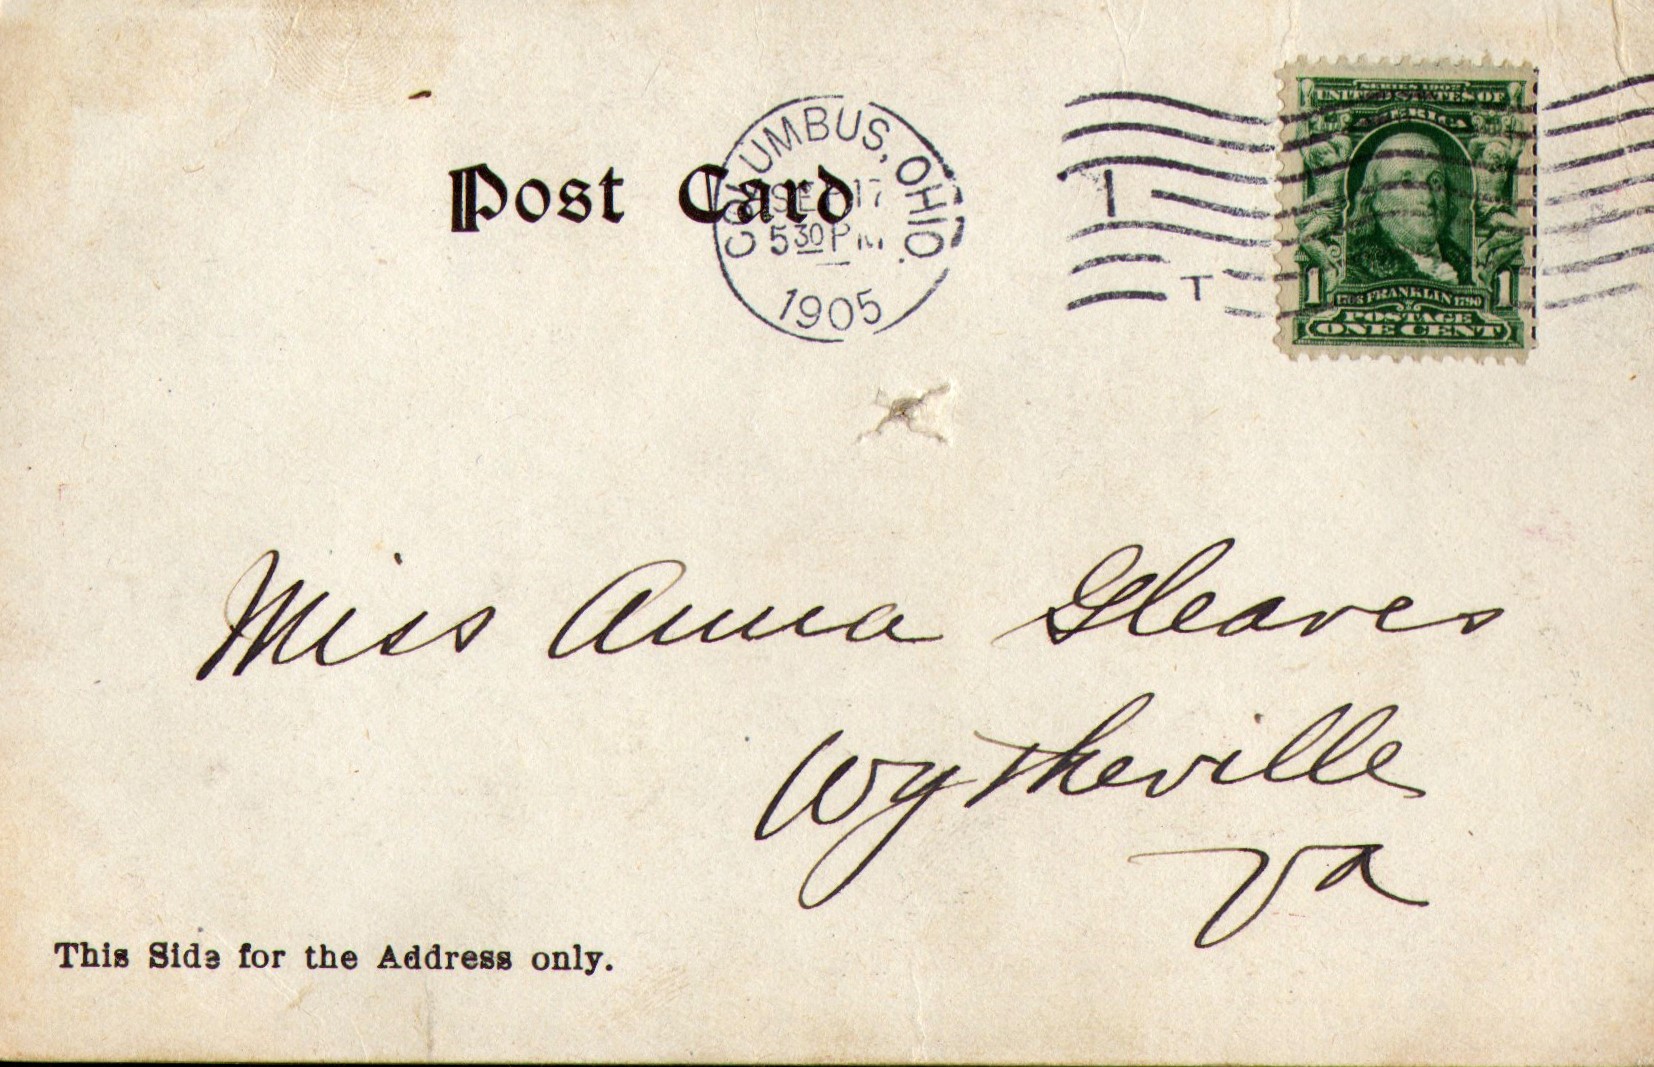 Post Card
COLUMBUS, OHIO.
SEP 17
5 30 PM
1905
1
T
SERIES 1902
UNITED STATES OF
AMERICA
1 1706 FRANKLIN 1790 1
POSTAGE
ONE CENT
Miss Anna Gleaves
Wytheville
Va
This Side for the Address only.